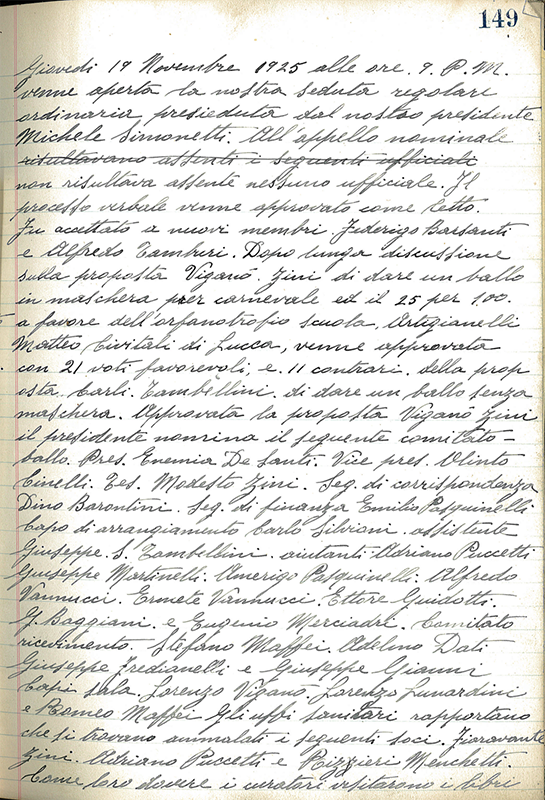 149
Giovedi 19 Novembre 1925 alle ore. 9. P.M.
venne aperta la nostra seduta regolare
ordinaria, presieduta dal nostro presidente
Michele Simonetti. All'appello nominale
risultavano assenti i seguenti ufficiali
non risultava assente nessuno ufficiale. Il
processo verbale venne approvato come letto.
Fu accettato a nuovi membri. Federigo Barsanti
e Alfredo Tamburi. Dopo lunga discussione
sulla proposta Viganó. Zini di dare un ballo
in maschera per carnevale ed il 25 per 100.
a favore dell'orfanotrofio scuola, Artigianelli
Matteo Civitali di Lucca, venne approvata
con 21 voti favorevoli, e. 11 contrari. della prop
osta. Carli. Tambellini. di dare un ballo senza
maschera. Approvata la proposta Viganó Zini
il presidente nomina il seguente comitato-
ballo. Pres. Enemia De Santi. Vice pres. Olinto
Cinelli. Tes. Modesto Zini. Seg. di corrispondenza
Dino Barontini. Seg. di finanza Emilio Pasquinelli
Capo di arrangiamento Carlo Silvioni. assistente
Giuseppe. S. Tambellini. aiutanti Adriano Puccetti
Giuseppe Martinelli. Amerigo Pasquinelli. Alfredo
Vannucci. Ermete Vannucci. Ettore Guidotti.
G. Baggiani. e Eugenio Merciadri. Comitato
ricevimento. Stefano Maffei. Adelmo Dati
Giuseppe Fredianelli e Giuseppe Gianni
Capi sala. Lorenzo Viganó. Lorenzo Lunardini
e Romeo Maffei Gli uffi sanitari rapportano
che si trovano ammalati i seguenti soci. Fioravante
Zini. Adriano Puccetti e Rizzieri Menchetti.
Come loro dovere i curatori visitarono i libri